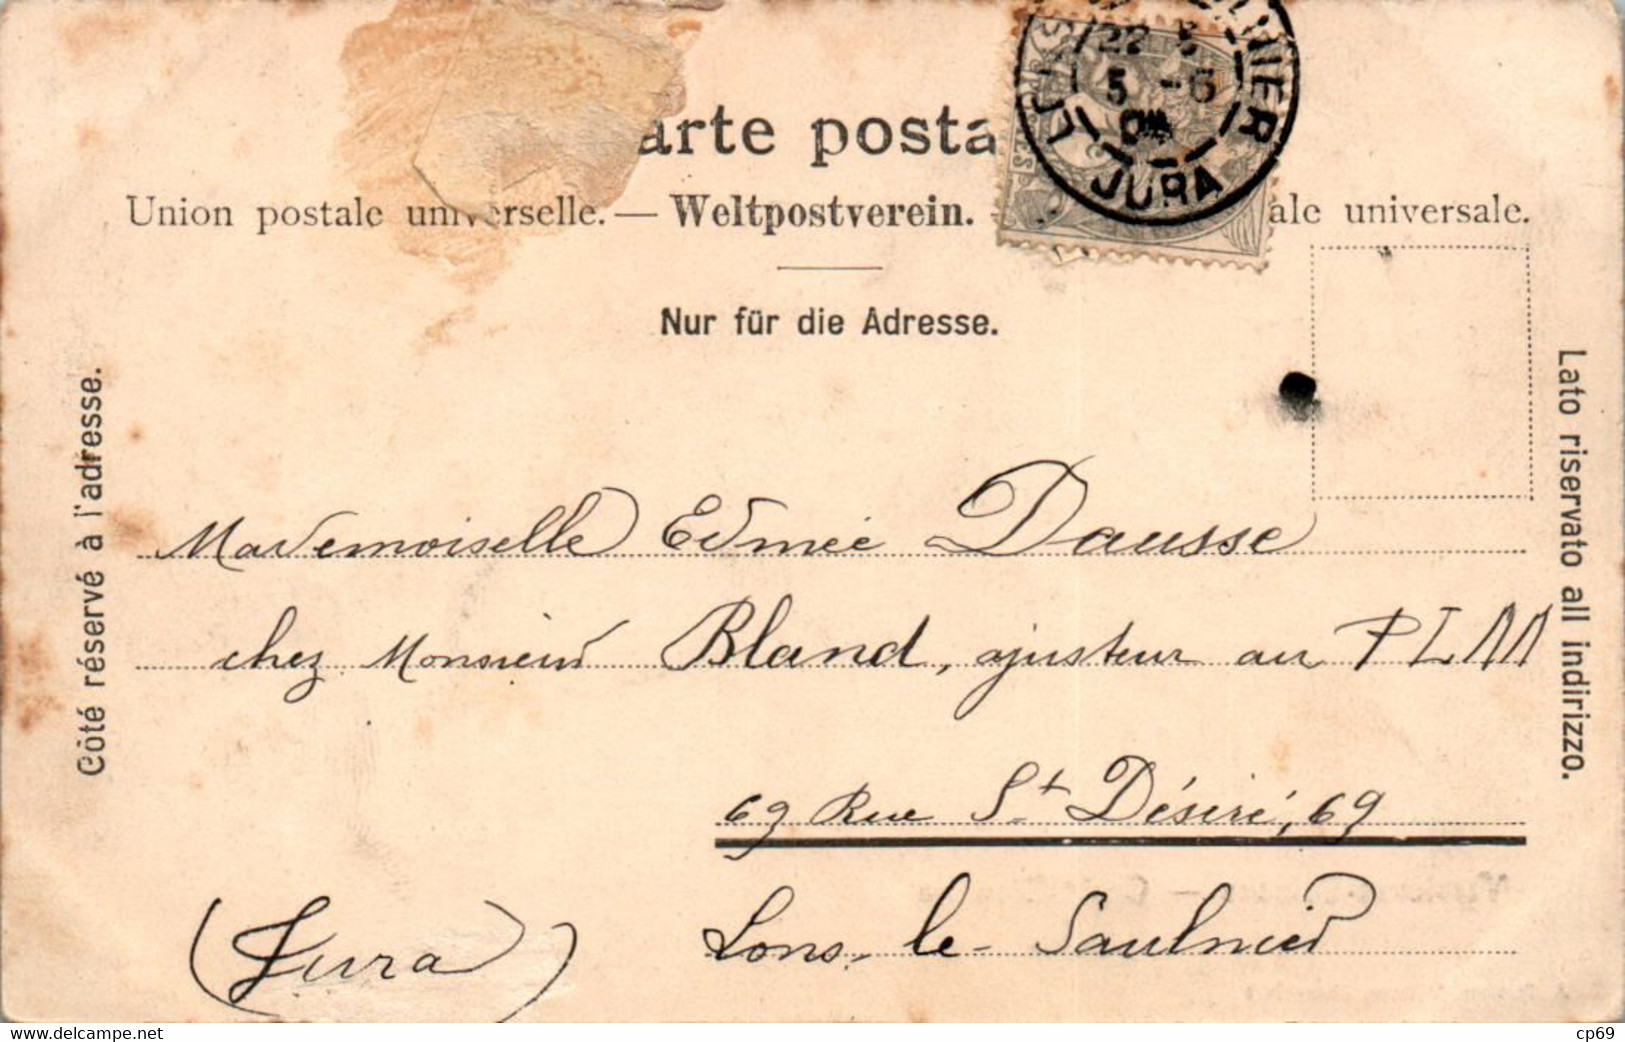 arte posta
Union postale universelle. — Weltpostverein. — ale universale.
Nur für die Adresse.
Côté réservé à l'adresse.
Lato riservato all indirizzo.
22
5 - 6
04
JURA
Mademoiselle Edmée Dausse
chez Monsieur Bland, ajusteur au PLM
69 Rue St Désiré, 69
Lons-le-Saulnier
(Jura)
cp69